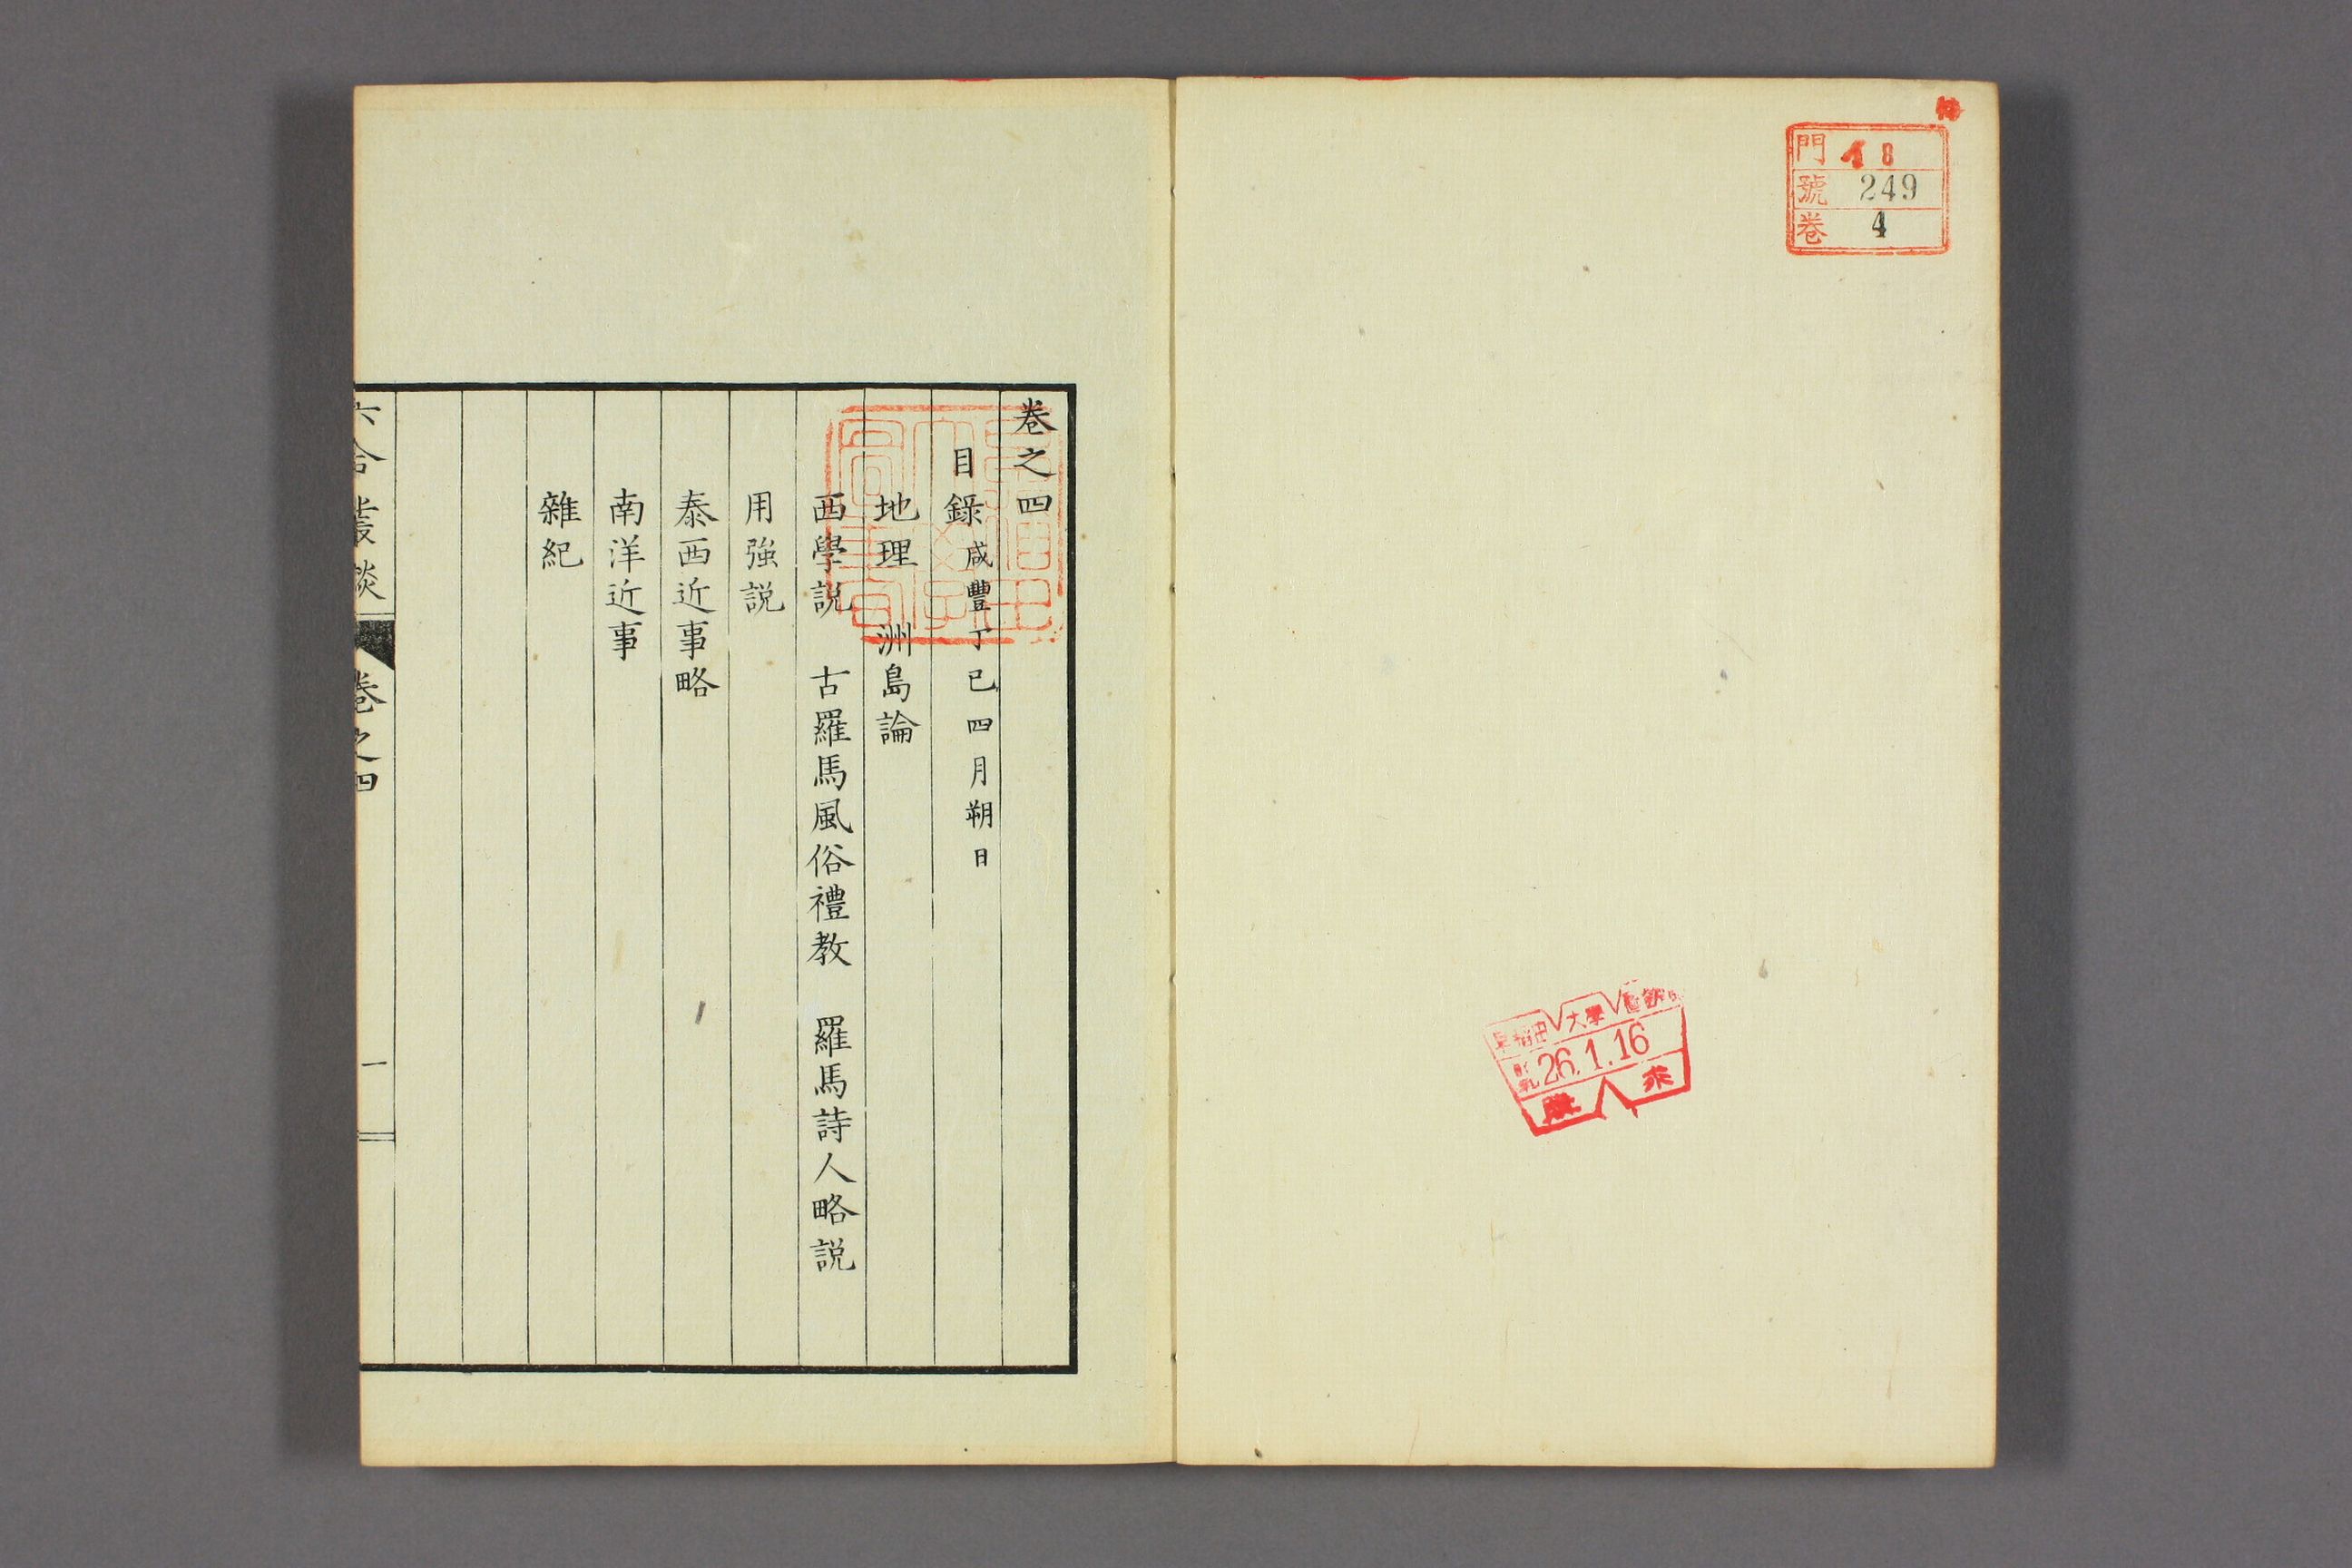 門 イ 8
號 249
卷 4
早稻田大學圖
26.1.16
購 求
卷之四
目錄 咸豐丁巳四月朔日
地理 洲島論
西學説 古羅馬風俗禮教 羅馬詩人略説
用強説
泰西近事略
南洋近事
雜紀
六合叢談 卷之四 一